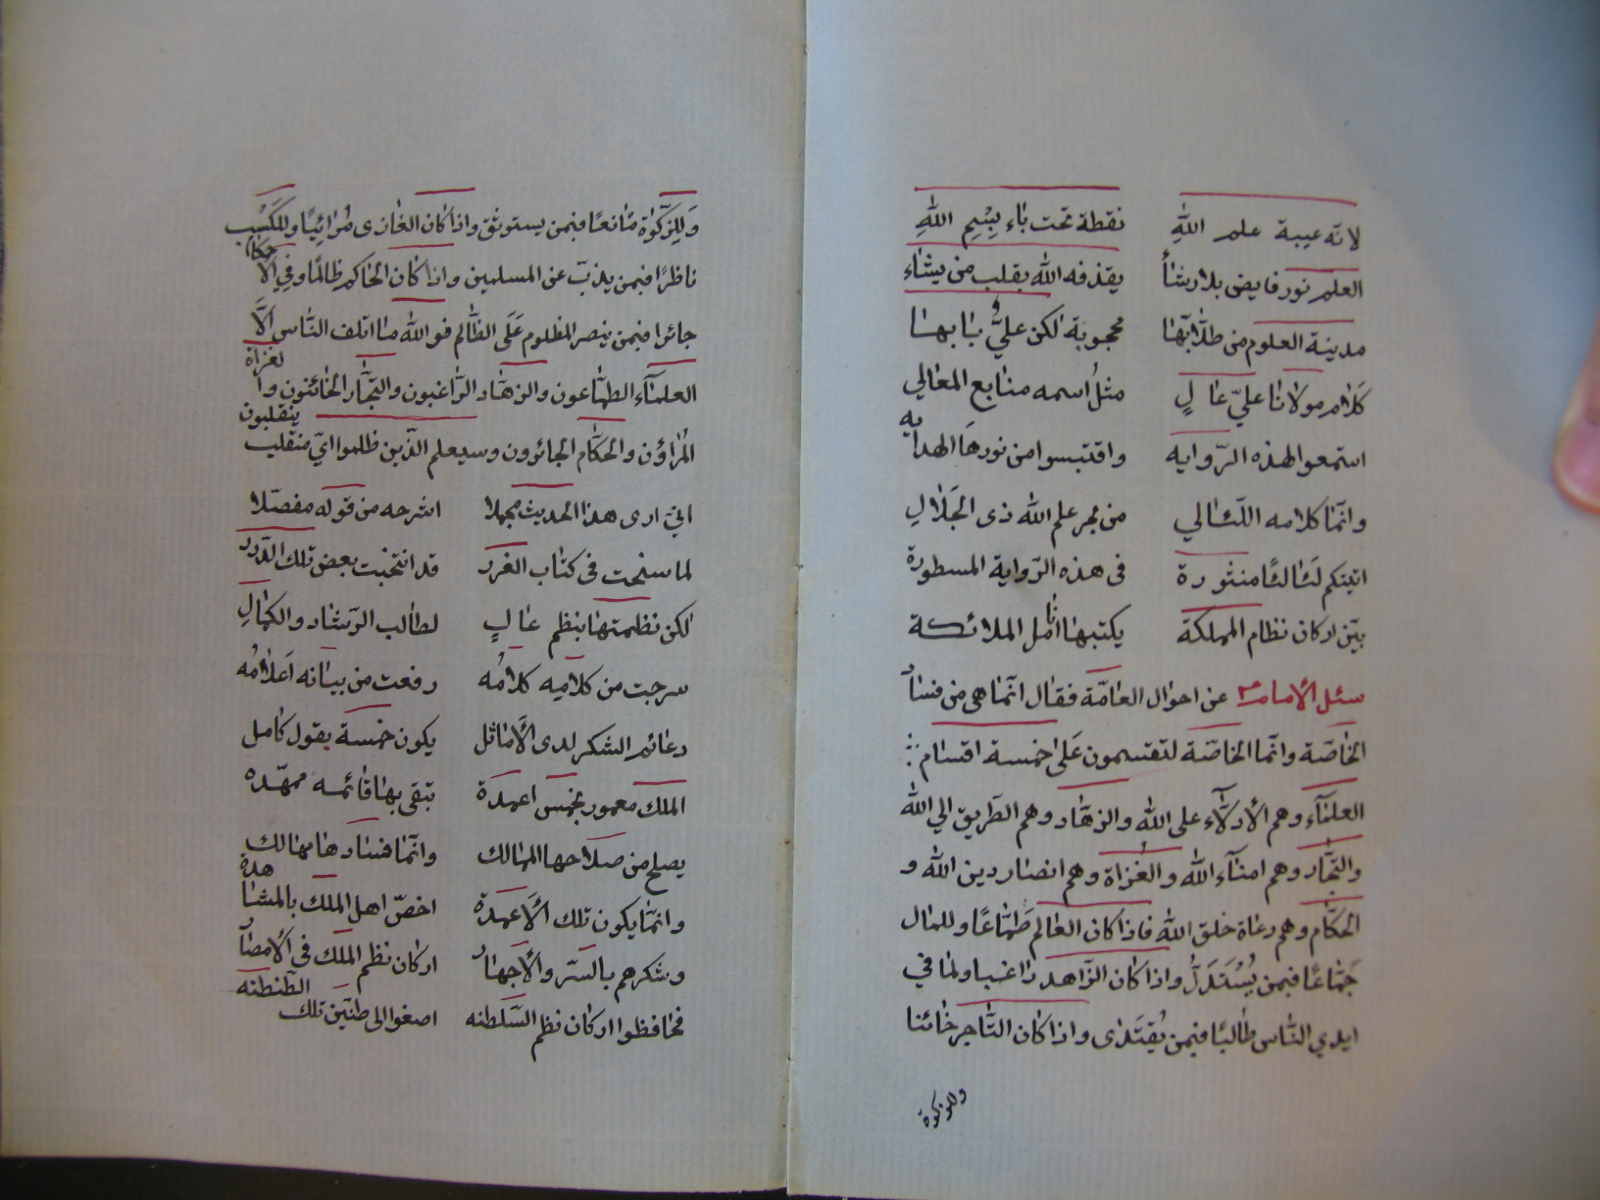 لانّه عيبة علم اللّهِ نقطة تحت باء بِسْمِ اللّهِ
العلم نور فايض بلا رشأ يقذفه اللّه بقلب من يشاء
مدينة العلوم من طلّابها محجوبة لكن عليٌّ بابها
كَلام مولانا عليّ عالٍ مثلُ اسمه منابع المعالي
استمعوا لهذه الرّوايه واقتبسوا من نورها الهدايه
وانّما كلامه اللئالي من بحر علم اللّه ذى الجَلالِ
اتيتكم لئالئًا منثورة فى هذه الرّواية المسطورة
بيّن اركان نظام المملكة يكتبها اماثل الملائكة
سئل الأمام عن احوال العامّة فقال انّما هى من فساد
الخاصّة وانّما الخاصّة لتقسمون عَلى خمسة اقسام
العلمآء وهم الأدلّآء على اللّه والزهّاد وهم الطّريق الي اللّه
والتجّار وهم امنآء اللّه والغُزاة وهم انصار دين اللّه و
الحكّام وهم رعاة خلق اللّه فاذا كان العالم طمّاعًا وللمال
جمّاعًا فبمن يُسْتَدَلُّ واذا كان الزّاهد راغبا ولما في
ايدي النّاس طالبًا فبمن يُقتَدَى واذا كان التّاجر خائنا
وللزكوة
وَلِلزّكوٰة مانعًا فبمن يستوثق واذا كان الغازى مُرائيًا وللكَسْب
ناظرًا فبمن يذبّ عن المسلمين واذا كان الحاكم ظالمًا وفي الأحكام
جائرا فبمن ينصر المظلوم عَلَى الظّالم فواللّه ما اتلف النّاس الّا
العلمآء الطمّاعون والزهّاد الرّاغبون والتجّار الخائنون والغزاة
المُراؤن والحكّام الجائرون وسيعلم الّذين ظلموا ايّ منقلب ينقلبون
انيّ ارى هذا الحديث مجملا اشرحه من قوله مفصّلا
لما سنحت فى كتاب الغرر قد انتخبت بعض تلك الدّرر
لكن نظمتها بنظم عالٍ لطالب الرّشاد والكمالِ
سرجت من كلامِه كلامُه رفعت من بيانه اَعلامُه
دعائم الشكر لدى الأماثل يكون خمسة بقول كامل
الملك معمور بخمس اعمدة تبقى بها قائمه ممهّده
يصلح من صلاحها الممالك وانّما فسادها مهالك
وانّما يكون تلك الأعمدة اخصّ اهل الملك بالمشاهدة
وشكرهم بالسّر والأجهار اركان نظم الملك فى الأمصار
فحافظوا اركان نظم السّلطنه اصغوا الى طنين تلك الطّنطنه